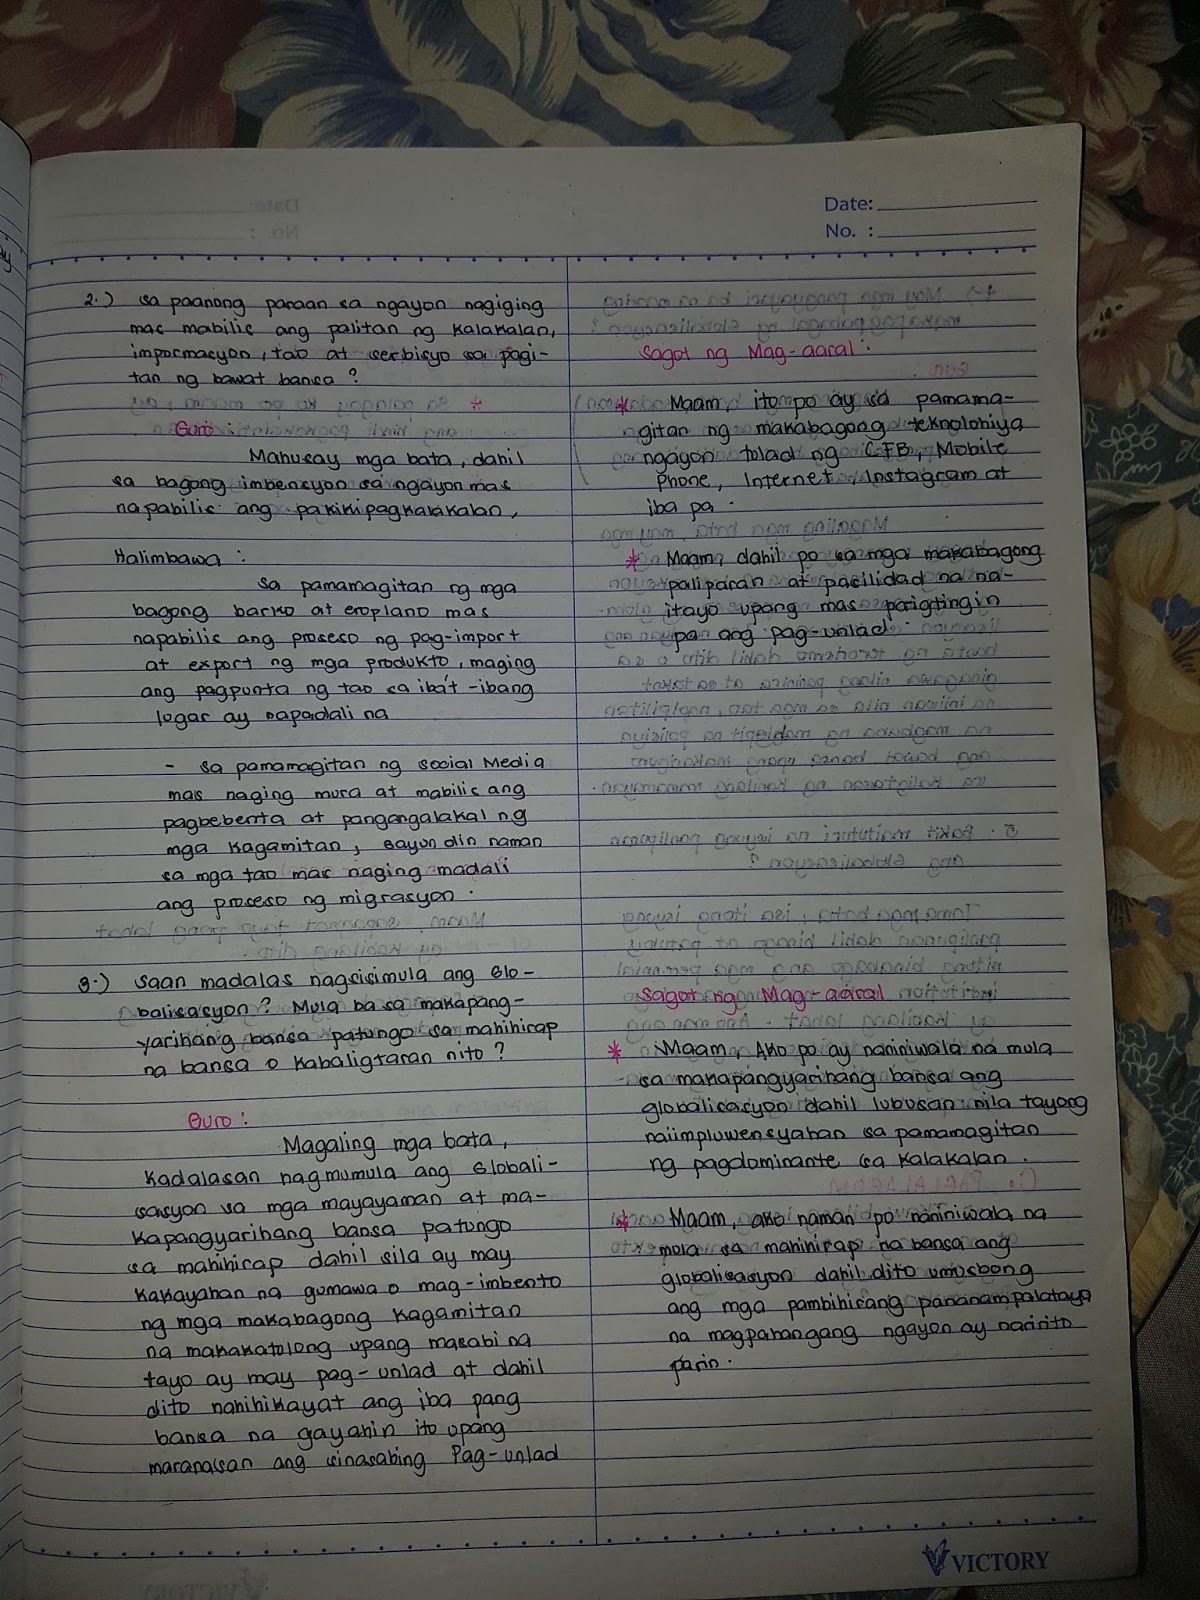 Date:
No. :
2.) sa paanong paraan sa ngayon nagiging
mas mabilis ang palitan ng kalakalan,
impormasyon, tao at serbisyo sa pagi-
tan ng bawat bansa ?
Guro :
Mahusay mga bata, dahil
sa bagong imbensyon sa ngayon mas
napabilis ang pakikipagkalakalan,
Halimbawa :
Sa pamamagitan ng mga
bagong barko at eroplano mas
napabilis ang proseso ng pag-import
at export ng mga produkto, maging
ang pagpunta ng tao sa iba't-ibang
lugar ay napadali na
- sa pamamagitan ng social Media
mas naging mura at mabilis ang
pagbebenta at pangangalakal ng
mga kagamitan, gayun din naman
sa mga tao mas naging madali
ang proseso ng migrasyon.
3.) saan madalas nagsisimula ang Glo-
balisasyon ? Mula ba sa makapang-
yarihang bansa patungo sa mahihirap
na bansa o kabaligtaran nito ?
Guro :
Magaling mga bata,
kadalasan nagmumula ang Globali-
sasyon sa mga mayayaman at ma-
kapangyarihang bansa patungo
sa mahihirap dahil sila ay may
kakayahan na gumawa o mag-imbento
ng mga makabagong kagamitan
na makakatulong upang masabi na
tayo ay may pag-unlad at dahil
dito nahihikayat ang iba pang
bansa na gayahin ito upang
maranasan ang sinasabing Pag-unlad
Sagot ng Mag-aaral :
* Maam, ito po ay sa pamama-
gitan ng makabagong teknolohiya
ngayon tulad ng FB, Mobile
Phone, Internet, Instagram at
iba pa.
* Maam, dahil po sa mga makabagong
paliparan at pasilidad na na-
itayo upang mas paigtingin
pa ang pag-unlad.
Sagot ng Mag-aaral
* Maam, Ako po ay naniniwala na mula
sa makapangyarihang bansa ang
globalisasyon dahil lubusan nila tayong
naiimpluwensyahan sa pamamagitan
ng pagdominante sa kalakalan.
* Maam, ako naman po naniniwala na
mula sa mahihirap na bansa ang
globalisasyon dahil dito umusbong
ang mga pambihirang pananampalataya
na magpahangang ngayon ay naririto
parin.
VICTORY